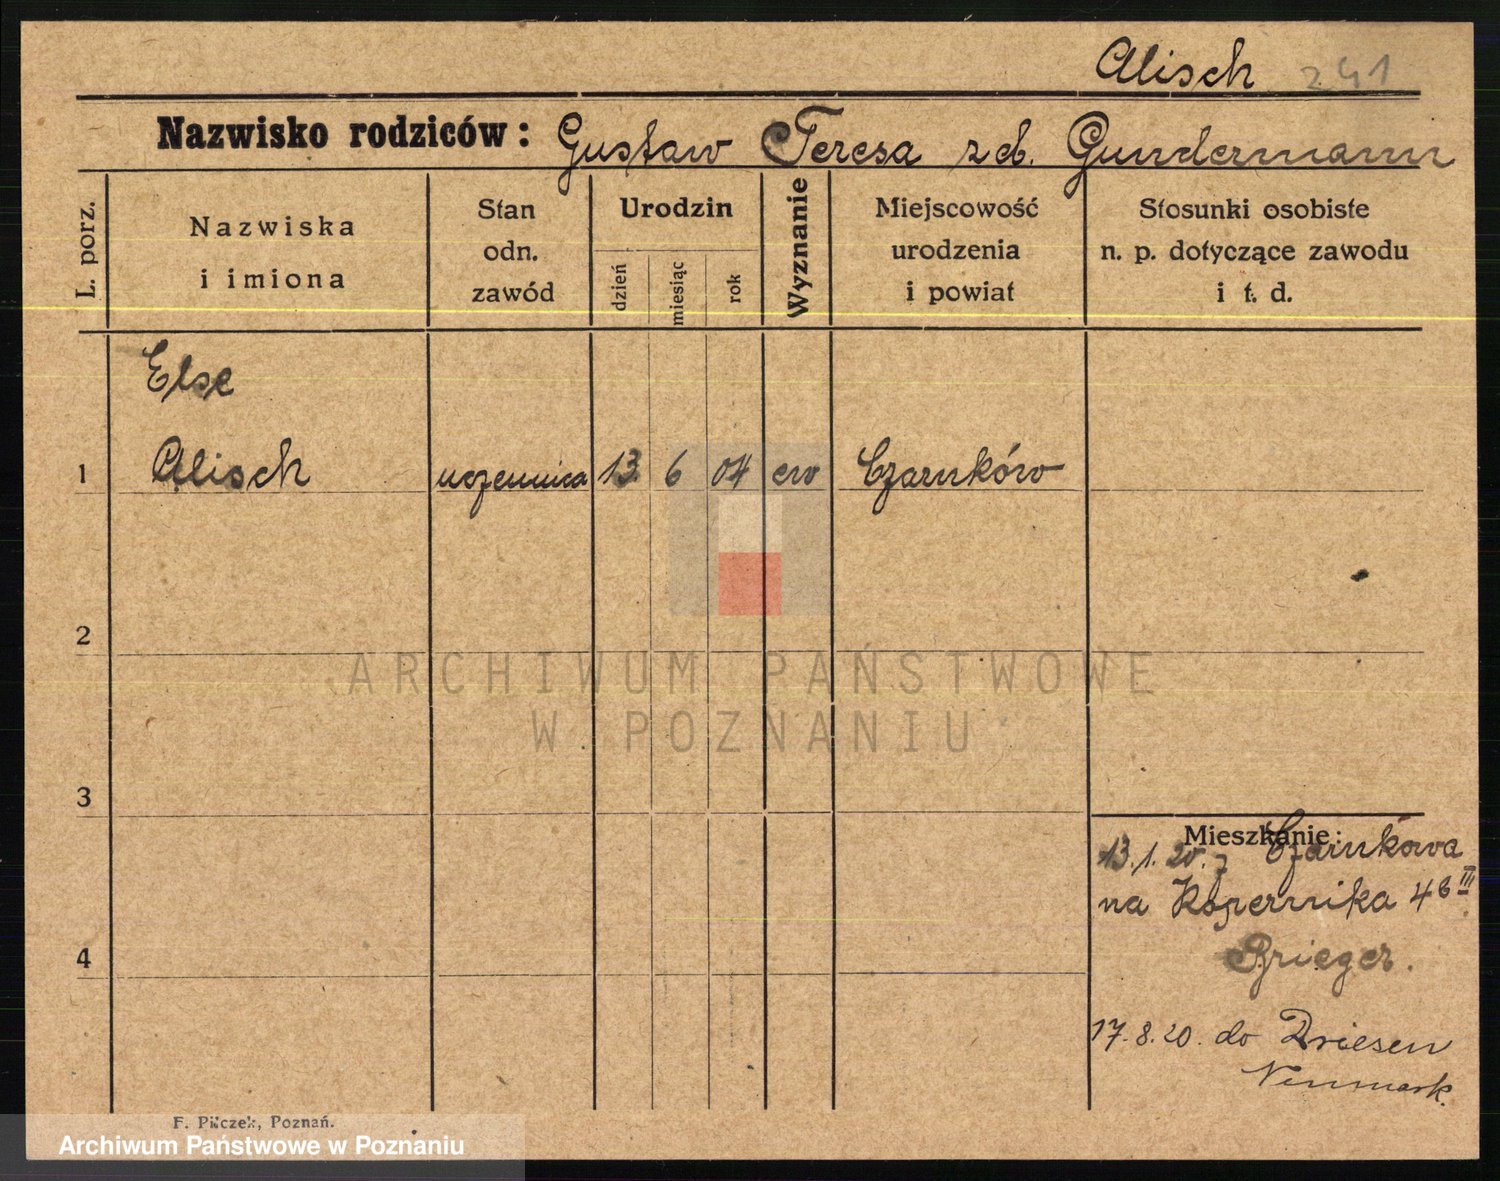 Alisch 241
Nazwisko rodziców: Gustaw Teresa z d. Gundermann
L. porz.
Nazwiska
i imiona
Stan
odn.
zawód
Urodzin
dzień
miesiąc
rok
Wyznanie
Miejscowość
urodzenia
i powiat
Stosunki osobiste
n. p. dotyczące zawodu
i t. d.
Else
1 Alisch uczennica 13. 6 04 ew Czarnków
2
ARCHIWUM PAŃSTWOWE
W POZNANIU
3
Mieszkanie:
13.1.20. z Czarnkowa
na Kopernika 4 III
4
17.8.20. do Driesen
Neumark.
F. Pilczek, Poznań.
Archiwum Państwowe w Poznaniu